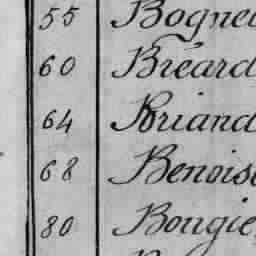 55 Bognel
60 Bréard
64 Briand
68 Benois
80 Bougie